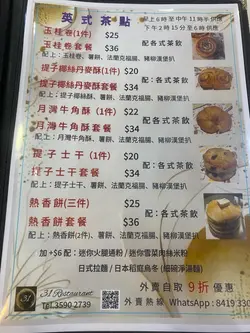 英式茶點
早上6時至中午11時半供應
下午2時15分至6時供應
玉桂卷(1件) $25
玉桂卷套餐 $36 配:各式茶飲
配上:玉桂卷、薯餅、法蘭克福腸、豬柳漢堡扒
提子椰絲丹麥酥(1件) $20
提子椰絲丹麥酥套餐 $34 配:各式茶飲
配上:提子椰絲酥、薯餅、法蘭克福腸、豬柳漢堡扒
月灣牛角酥(1件) $22
月灣牛角酥套餐 $34 配:各式茶飲
配上:月灣牛角酥、薯餅、法蘭克福腸、豬柳漢堡扒
提子士干(1件) $20
提子士干套餐 $34 配:各式茶飲
配上:提子士干、薯餅、法蘭克福腸、豬柳漢堡扒
熱香餅(三件) $25
熱香餅套餐 $36 配:各式茶飲
配上:熱香餅(2件)、薯餅、法蘭克福腸、豬柳漢堡扒
加+$6 配:迷你火腿通粉/迷你雪菜肉絲米粉
日式拉麵/日本稻庭烏冬(細碗淨湯麵)
31
31 Restaurant
Tel.3590 2739
外賣自取 9折優惠
外賣熱線 WhatsApp: 8419 33